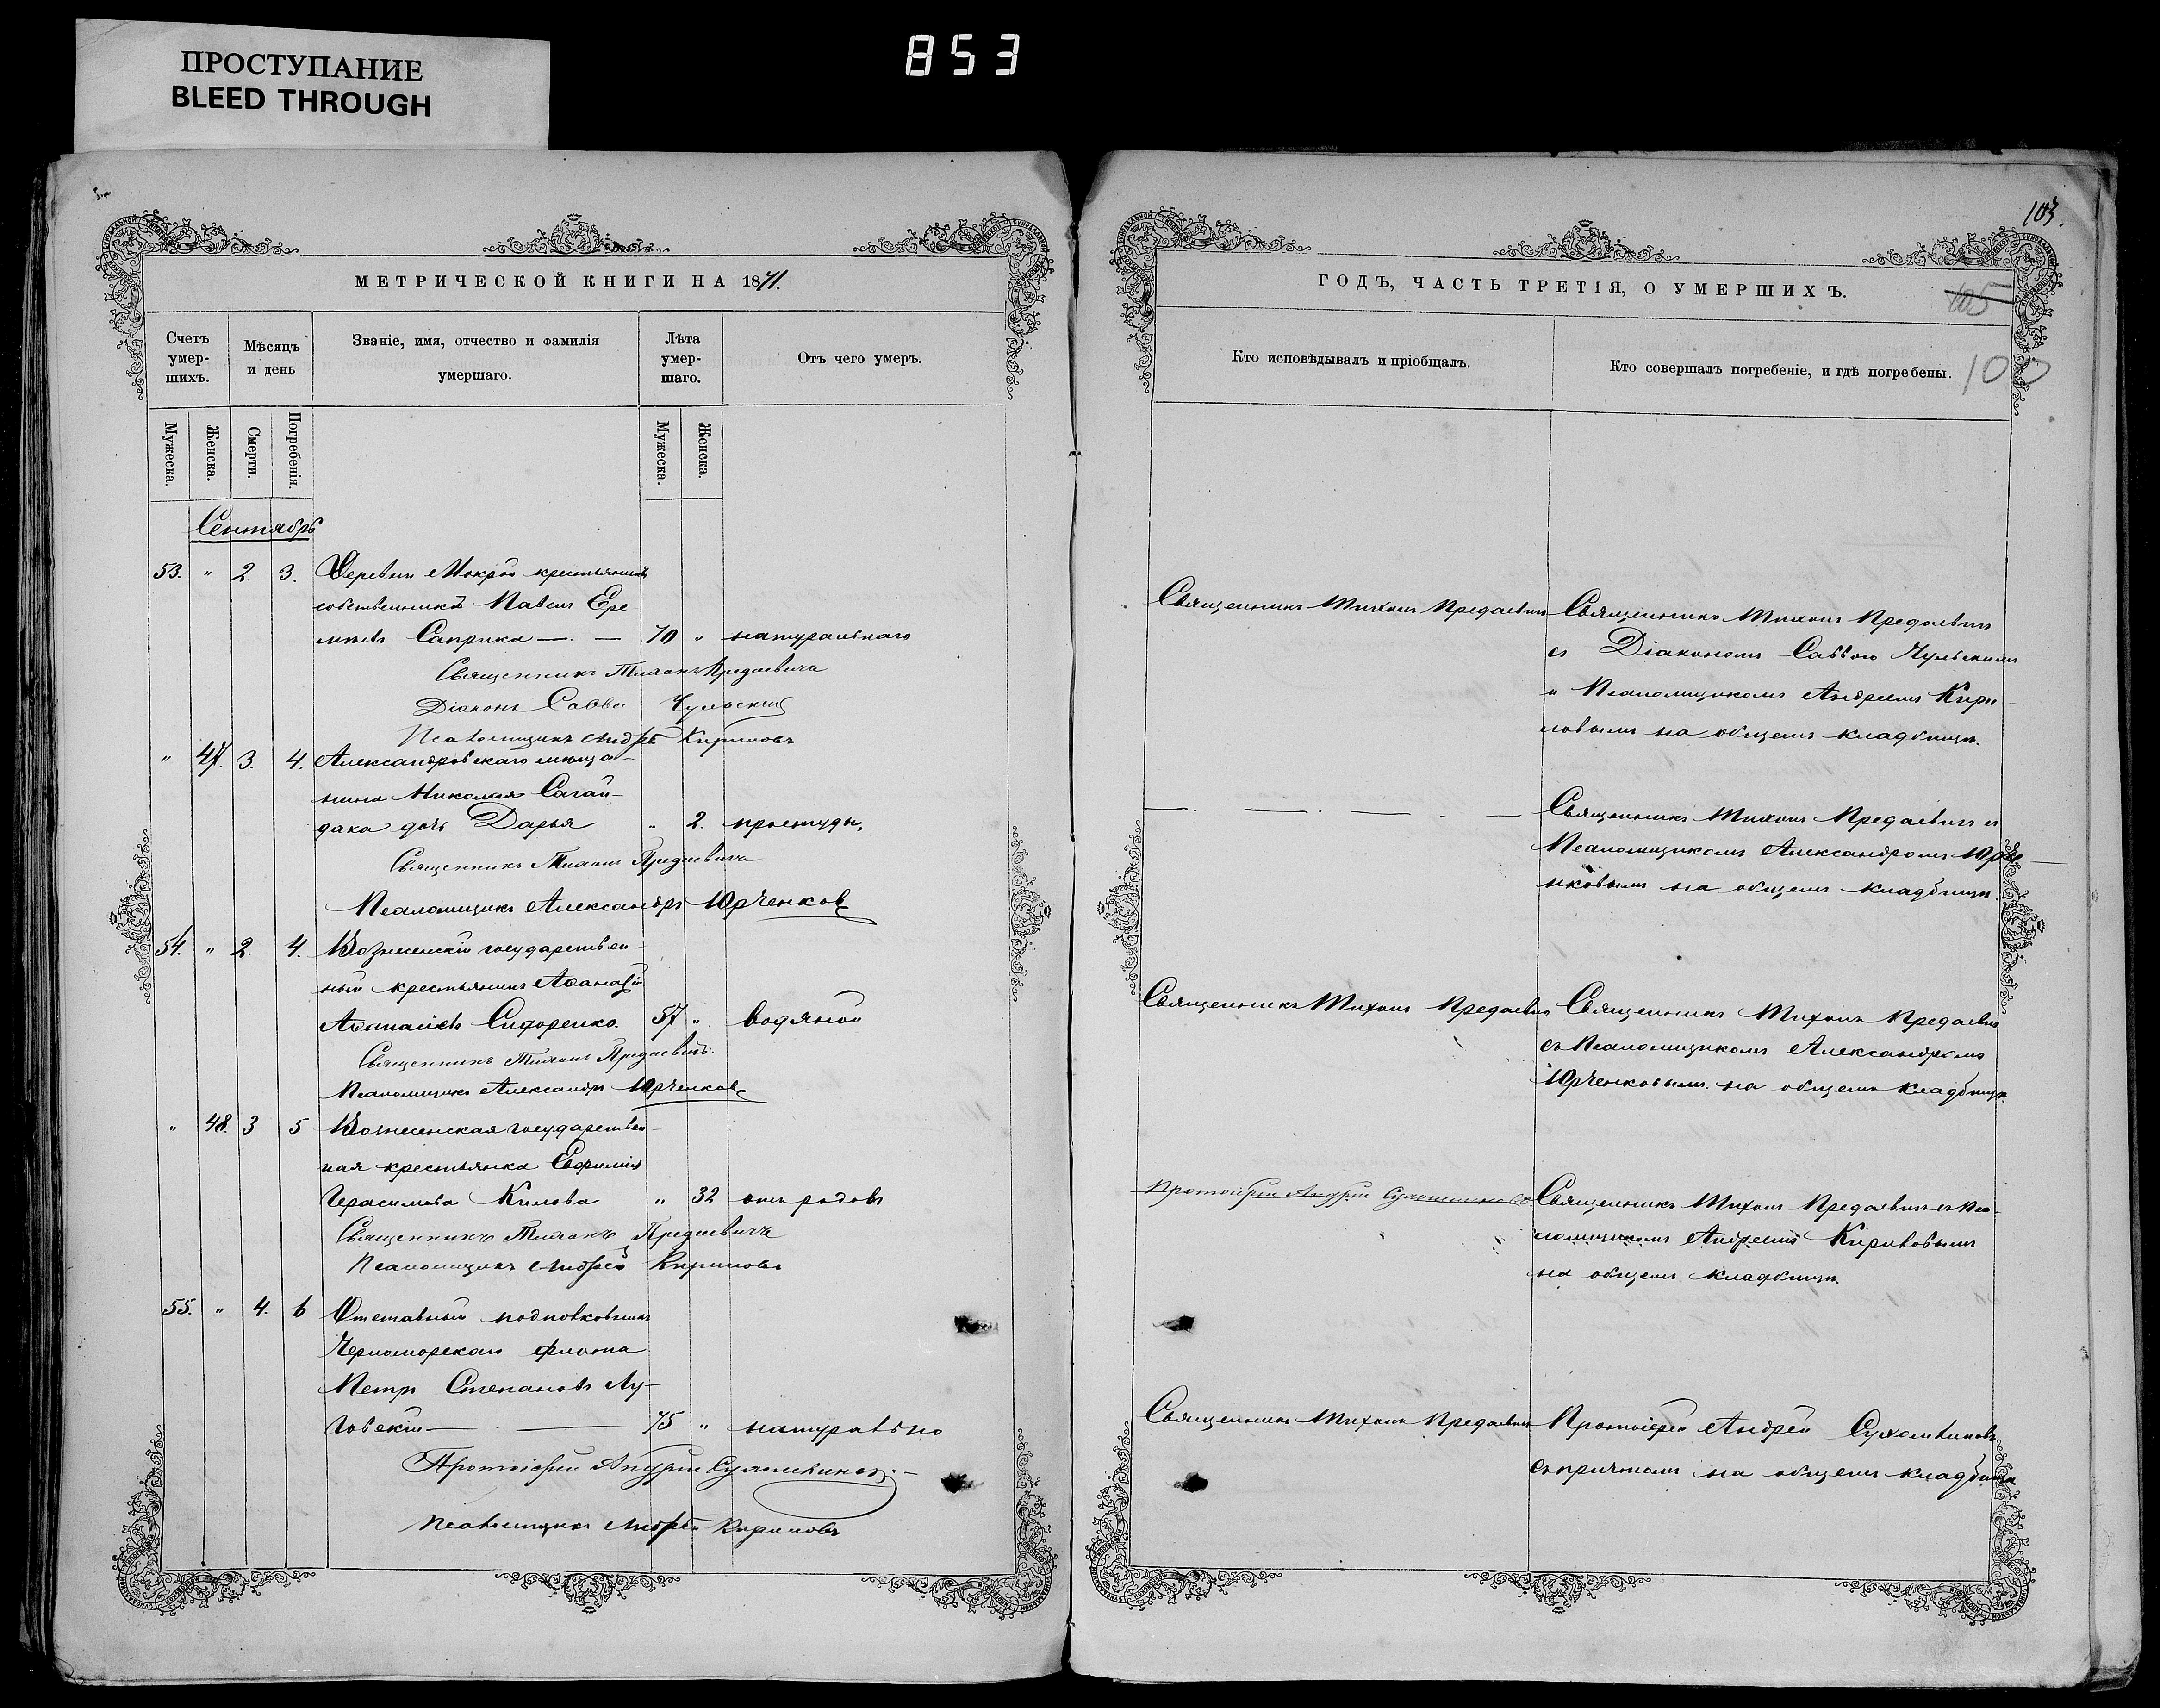 ПРОСТУПАНИЕ
BLEED THROUGH
853
103.
МЕТРИЧЕСКОЙ КНИГИ НА 1871.
Счетъ умер-шихъ.
Мѣсяцъ и день
Званіе, имя, отчество и фамилія умершаго.
Лѣта умер-шаго.
Отъ чего умеръ.
Мужеска.
Женска.
Смерти.
Погребенія.
Мужеска.
Женска.
Сентябрь
53. " 2. 3. Деревни Мокрой крестьянинъ
собственникъ Павелъ Ере
мѣевъ Саприка — . — 70 " натуральнаго
Священникъ Тихонъ Предаевичъ
Діаконъ Савва Чульскій
Псаломщикъ Андрей Кириловъ
" 47. 3. 4. Александровскаго мѣща-
нина Николая Сагай-
дака дочь Дарья " 2. простуды.
Священникъ Тихонъ Предаевичъ
Псаломщикъ Александръ Юрченковъ
54. " 2. 4. Вознесенскій государствен-
ный крестьянинъ Аѳанасій
Аѳанасіевъ Сидоренко. 57 " водяной
Священникъ Тихонъ Предаевичъ.
Псаломщикъ Александръ Юрченковъ
" 48. 3 5 Вознесенская государствен-
ная крестьянка Евфимія
Герасимова Килова " 32 отъ родовъ
Священникъ Тихонъ Предаевичъ
Псаломщикъ Андрей Кириловъ
55. " 4. 6 Отставный
Черноморскаго флота
Петръ Степановъ Лу-
говскій — — 75 " натурально
Протоіерей Андрей Сухомлиновъ.
Псаломщикъ Андрей Кириловъ
ГОДЪ, ЧАСТЬ ТРЕТІЯ, О УМЕРШИХЪ.
105
Кто исповѣдывалъ и пріобщалъ.
Кто совершалъ погребеніе, и гдѣ погребены.
100
Священникъ Тихонъ Предаевичъ
Священникъ Тихонъ Предаевичъ
съ Діакономъ Саввою Чульскимъ
и Псаломщикомъ Андреемъ Кири-
ловымъ на общемъ кладбищѣ.
— . — . — . —
Священникъ Тихонъ Предаевичъ съ
Псаломщикомъ Александромъ Юрче-
нковымъ на общемъ кладбищѣ.
Священникъ Тихонъ Предаевичъ
Священникъ Тихонъ Предаевичъ
съ Псаломщикомъ Александромъ
Юрченковымъ на общемъ кладбищѣ.
Протоіерей Андрей Сухомлиновъ.
Священникъ Тихонъ Предаевичъ съ Пса-
ломщикомъ Андреемъ Кириловымъ
на общемъ кладбищѣ.
Священникъ Тихонъ Предаевичъ
Протоіерей Андрей Сухомлиновъ
съ причтомъ на общемъ кладбищѣ